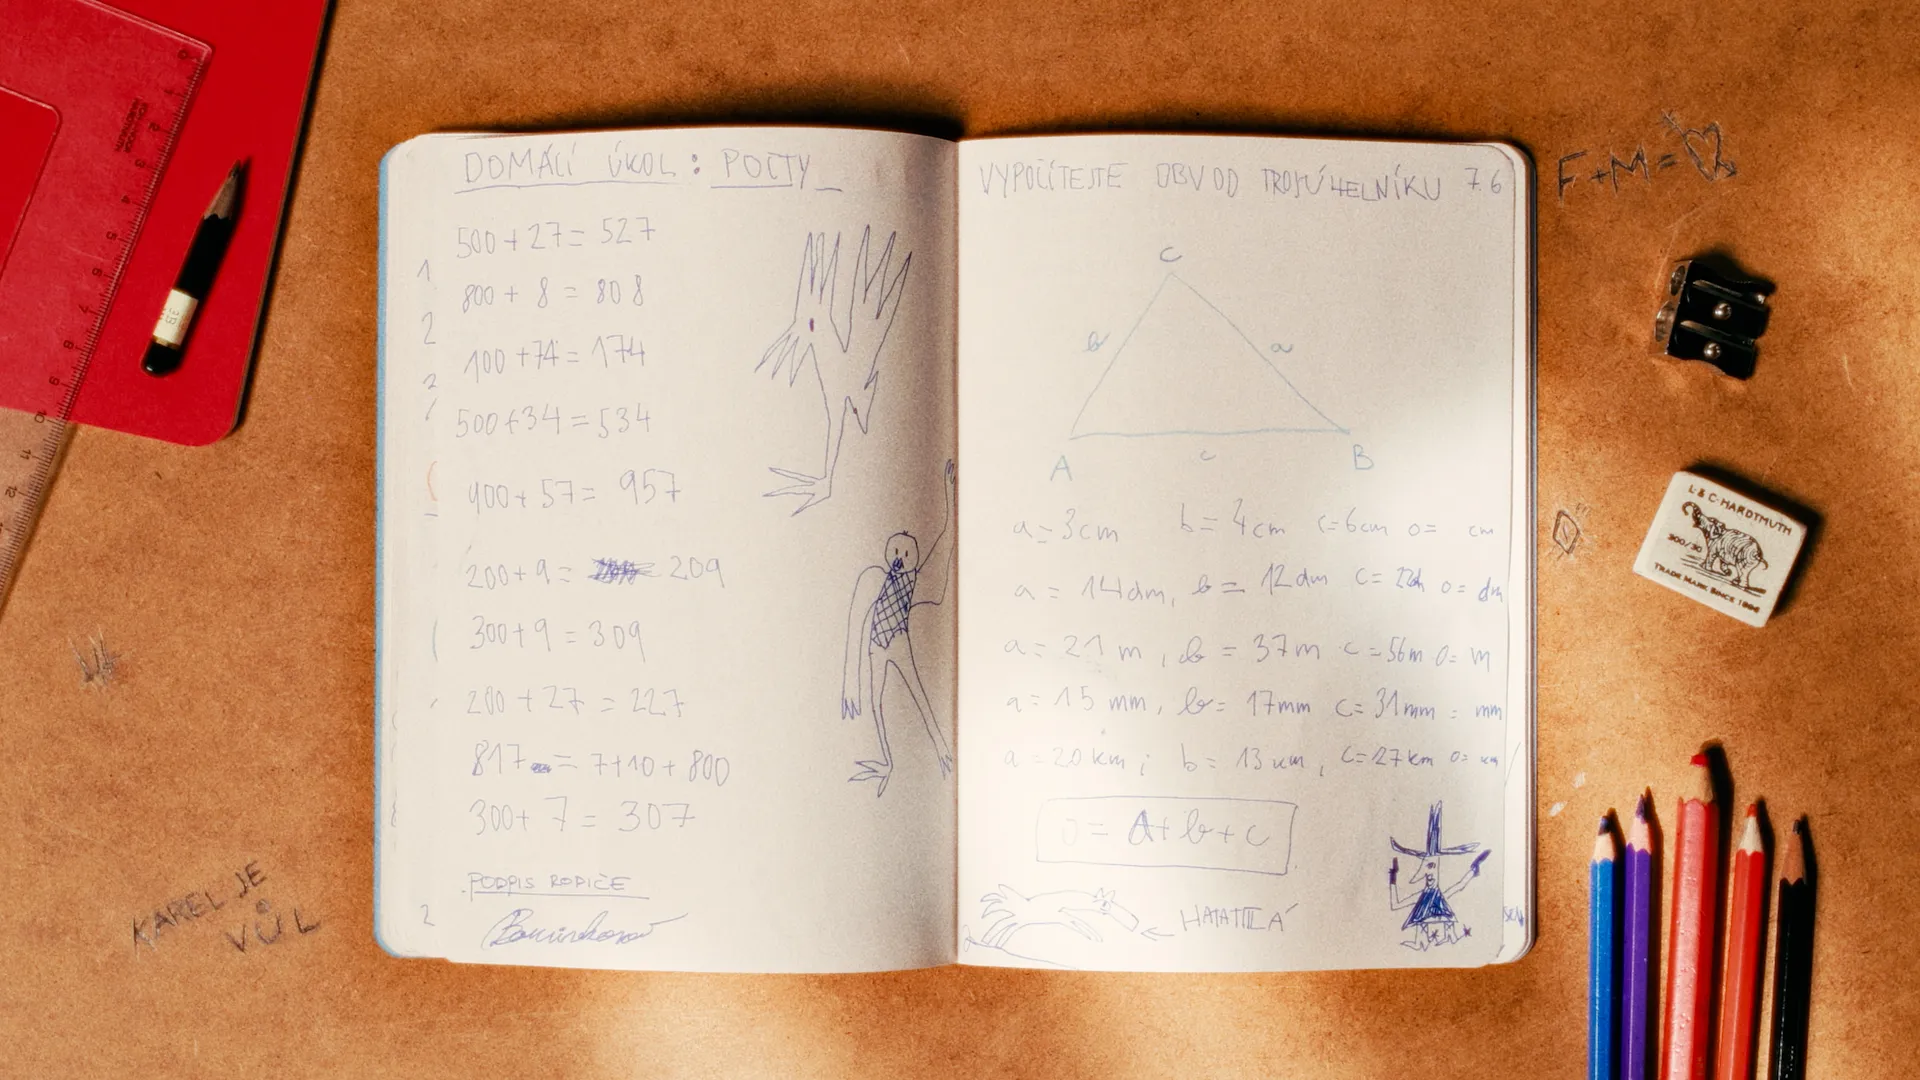 DOMÁCÍ ÚKOL: POČTY
500 + 27 = 527
800 + 8 = 808
100 + 74 = 174
500 + 34 = 534
900 + 57 = 957
200 + 9 = 209
300 + 9 = 309
200 + 27 = 227
817 = 7 + 10 + 800
300 + 7 = 307
PODPIS RODIČE
VYPOČÍTEJTE OBVOD TROJÚHELNÍKU 7.6
C
b a
A c B
a = 3 cm b = 4 cm c = 6 cm o = cm
a = 14 dm, b = 12 dm c = 22 o = dm
a = 21 m, b = 37 m c = 56 m o = m
a = 15 mm, b = 17 mm c = 31 mm = mm
a = 20 km; b = 13 km, c = 27 km o = km
o = A + b + c
HATATITLÁ
F + M =
L. & C. HARDTMUTH
300/30
TRADE MARK SINCE 1896
KAREL JE
VŮL